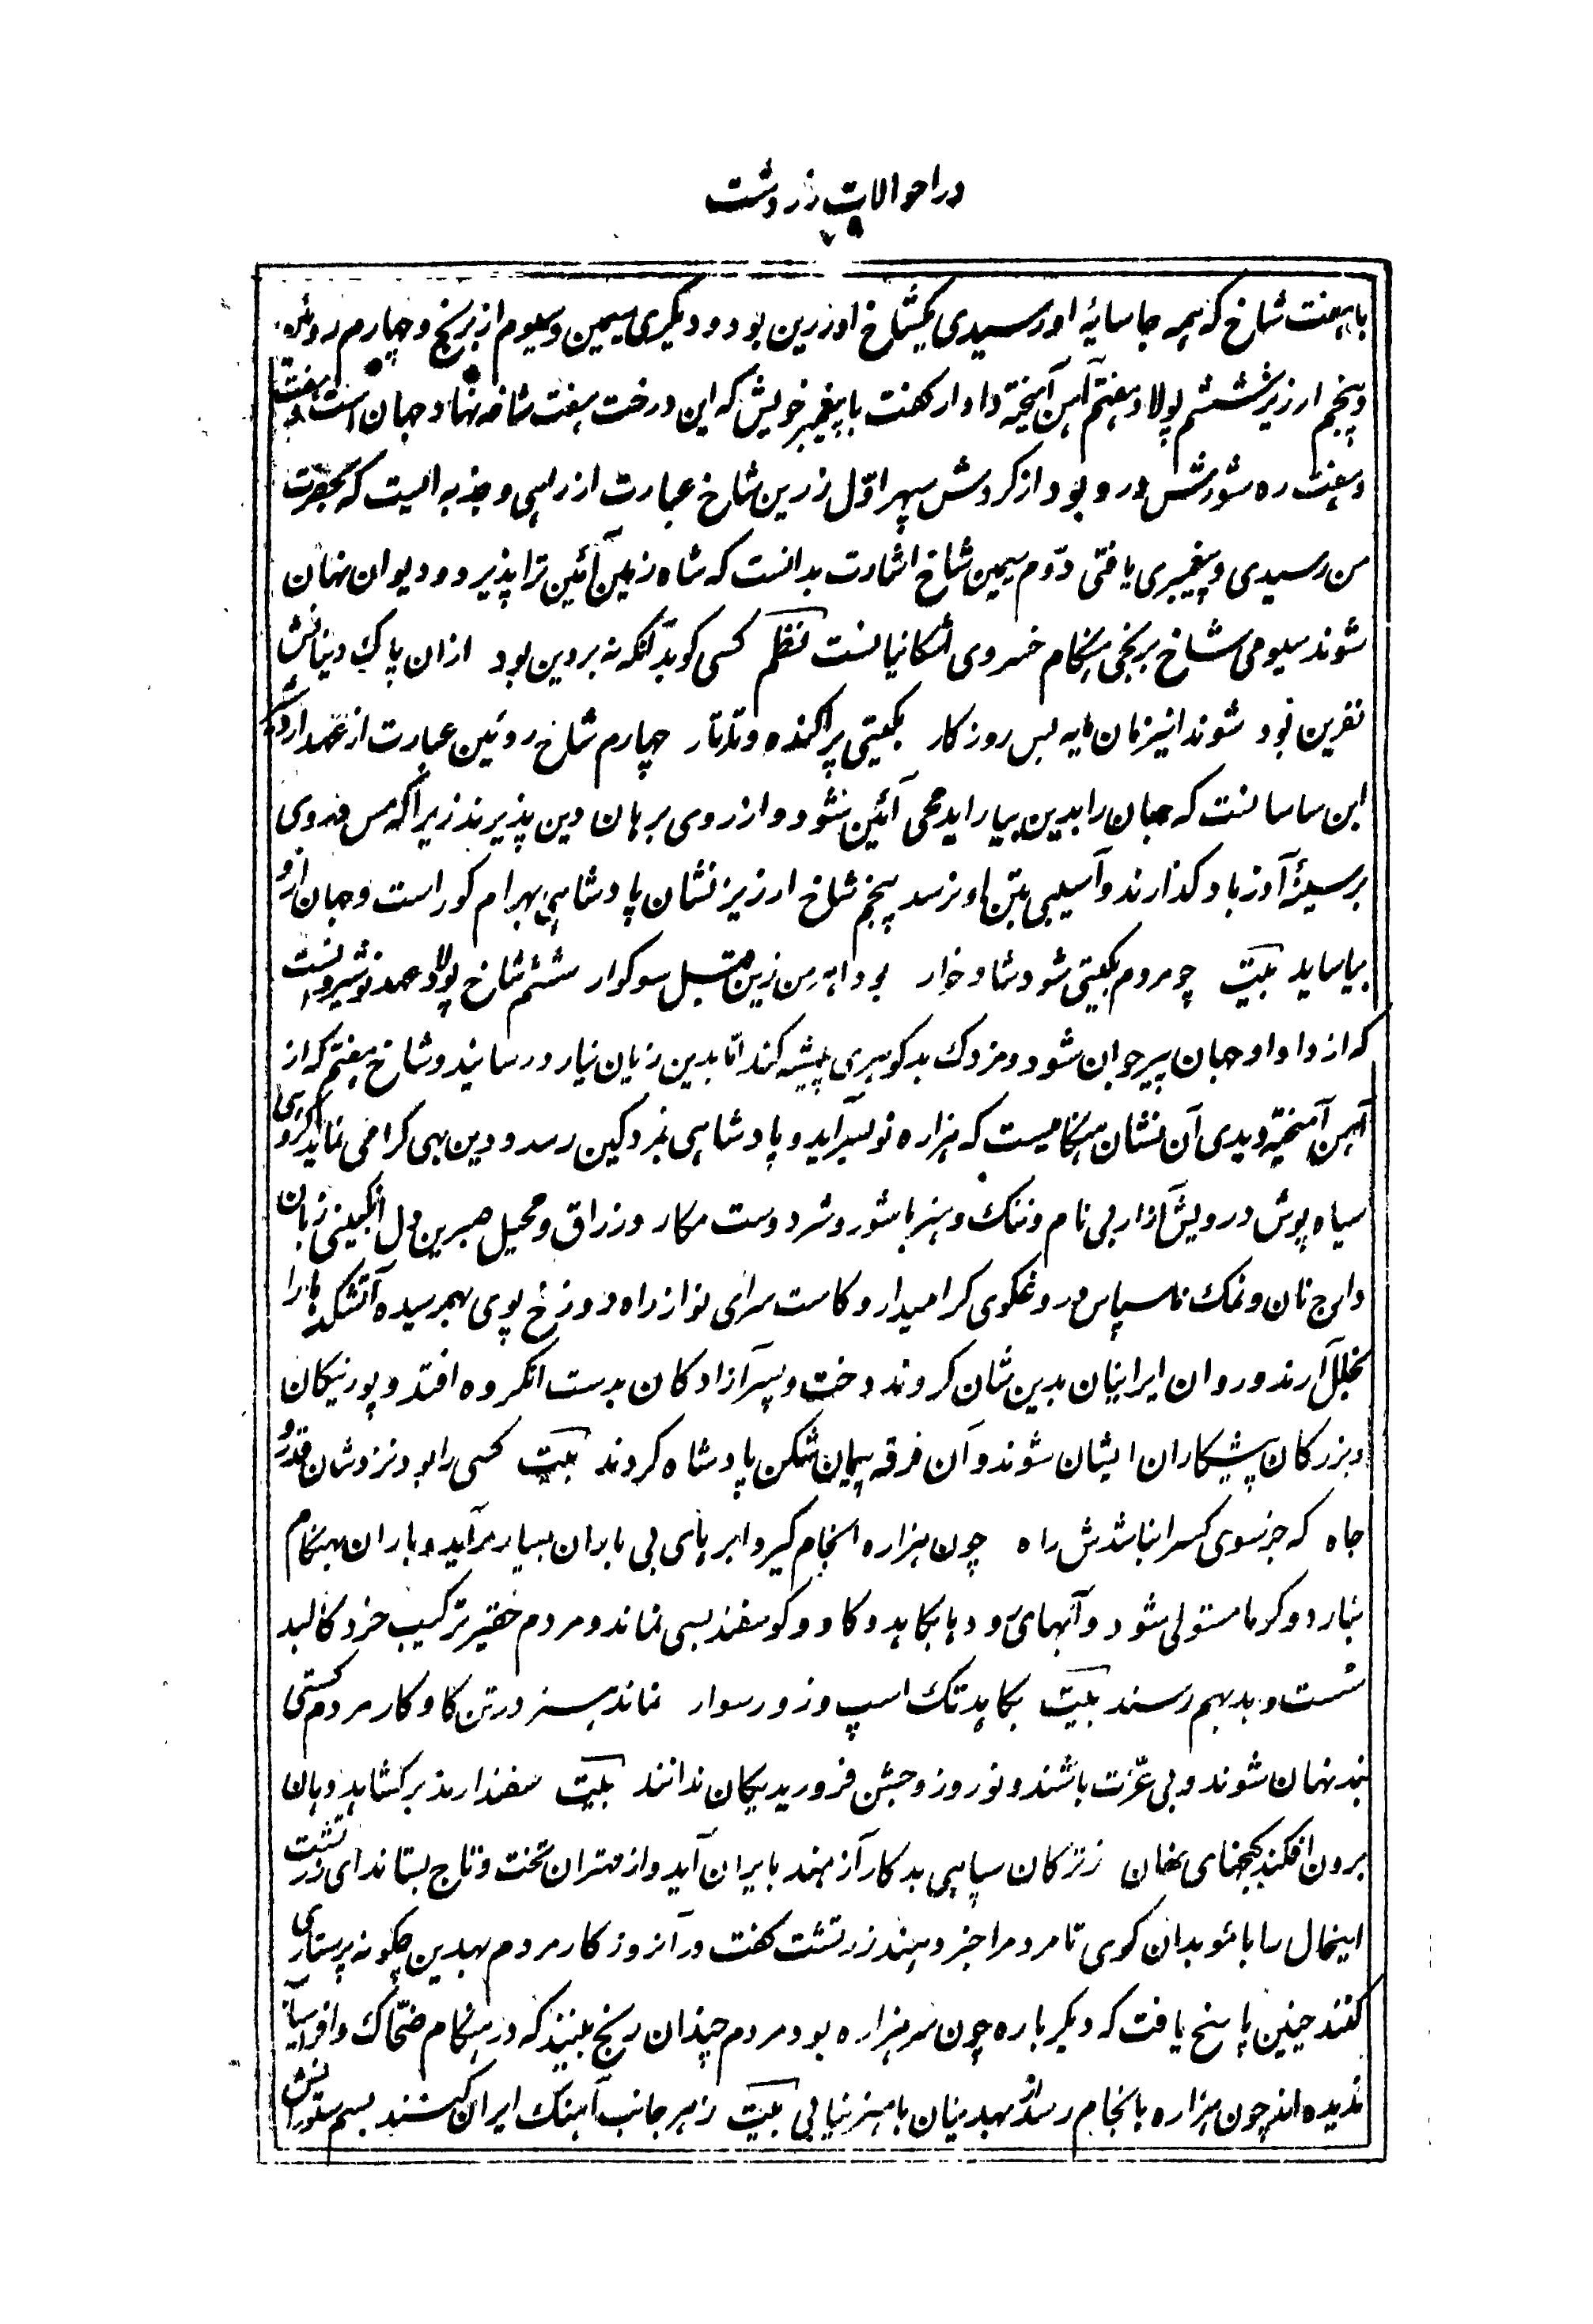 در احوالات زردشت
۷۹
با هفت شاخ که همه جا سایهٔ او رسیدی یکشاخ او زرین بود و دیگری سیمین و سیوم از برنج و چهارم روئین
و پنجم ارزیز ششم پولاد هفتم آهن آمیخته دادار کفت با پیغمبر خویش که این درخت هفت شاخه نهاد جهان است هفت
و هفت ره شورش درو بود از کردش سپهر اوّل زرین شاخ عبارت از راهی و جذبه ایست که بحضرت
من رسیدی و پیغمبری یافتی دوّم سیمین شاخ اشارت بدانست که شاه زمین آئین ترا پذیرد و دیوان نهان
شوند سیومی شاخ برنجی هنکام خسروی اشکانیانست نظم کسی کو بدانکه نه بر دین بود ازان پاک دینانش
نفرین بود شوند انیزمان مایه بس روزکار بکیتی پراکنده و تارتار چهارم شاخ روئین عبارت از عهد اردشیر
ابن ساسانست که جهان را بدین بیاراید محی آئین نشود و از روی برهان دین پذیرند زیرا که مس و روی
بر سینهٔ آذرباد کذارند و آسیبی بتن او نرسد پنجم شاخ ارزیز نشان پادشاهی بهرام کور است و جهان ازو
بیاساید بیت چو مردم بکیتی شود شاد خوار بود اهرمن زین قبل سوکوار ششم شاخ پولاد عهد نوشیروانست
که از داد او جهان پیر جوان شود و مزدک بدکوهری پیشه کند امّا بدین زیان نیارد رسانید و شاخ هفتم که از
آهن آمیخته دیدی آن نشان هنکامیست که هزاره نو بسرآید و پادشاهی بمزدکین رسد و دین بهی کرامی نماید کروهی
سیاه پوش درویش آزار بی نام و ننک و هنر با شور و شر دوست مکار و زراق و محیل صبرین دل انکبینی زبان
دارج نان و نمک ناسپاس دروغکوی کرامیدار و کاست سرای نواز راه دوزخ پوی بهم رسیده آتشکده ها را
بخلل آرند و روان ایرانیان بدین شان کروند دخت و پسر آزادکان بدست انکروه افتد و پور نیکان
و بزرکان پیشکاران ایشان شوند و آن فرقه پیمان شکن پادشاه کردند بیت کسی را بود نزدشان قدر و
جاه که جز سوی کسر انباشدش راه چون هزاره انجام کیرد ابرهای بی باران بسیار برآید و باران بهنکام
نبارد و کرما مستولی شود و آبهای رودها بکاهد و کاو و کوسفند بسی نماند و مردم حقیر ترکیب خرد کالبد
سست و بد بهم رسند بیت بکاهد تک اسپ و زور سوار نماند هنر در تن کاو کار مردم کستی
بند نهان شوند و بی عزّت باشند و نوروز و جشن فروردیکان ندانند بیت سفندارمذ برکشاید دهان
برون افکند کنجهای نهان ز ترکان سپاهی بدکار از هند بایران آید و از مهتران تخت و تاج بستاند ای زرتشت
اینحال را با موبدان کوی تا مردم را خبر دهند زرتشت کفت در آنروزکار مردم بهدین چکونه پرستاری
کنند چنین پاسخ یافت که دیکر باره چون سر هزاره بود مردم چندان رنج بینند که در هنکام ضحّاک و افراسیاب
ندیده اند چون هزاره بانجام رسد از بهدینان با هنر نیابی بیت ز هر جانب آهنک ایران کنند بسم ستورانش